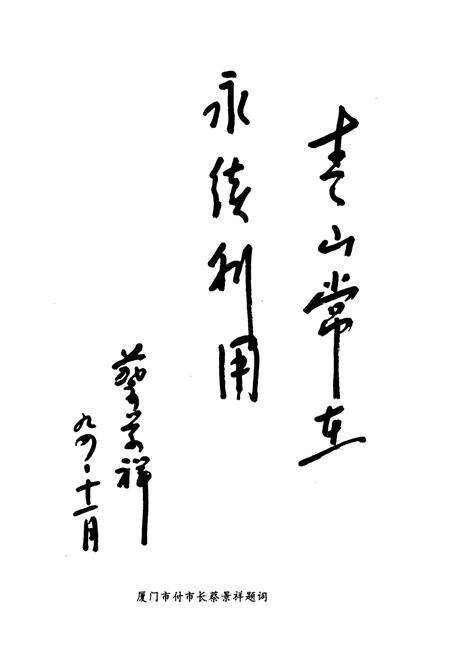 青山常在
永续利用
蔡景祥
九四、十一月
厦门市付市长蔡景祥题词